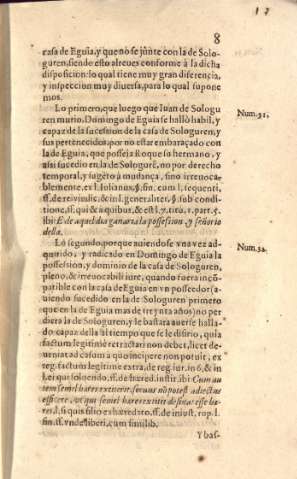 8
casa de Eguia, y que no se junte con la de Solo-
guren, siendo esto al reues conforme à la dicha
disposicion: lo qual tiene muy gran diferencia,
y inspeccion muy diuersa, para lo qual supone
mos.
Lo primero, que luego que Iuan de Sologu
ren murio, Domingo de Eguia se hallò habil, y
capaz de la sucession de la casa de Sologuren, y
sus pertenecidos, por no estar embaraçado con
la de Eguia, que posseja Roque su hermano, y
assi sucediò en la de Sologurē, no por derecho
temporal, y sugeto à mudança, sino irreuoca-
blemente, ex l. Iulianus, §. fin. cum l. sequenti,
ff. de reivindic. & in l. generaliter, §. sub condi-
tione, ff. qui & à quibus, & est l. 7. tito. 1. part. 5.
ibi: E de aquel dia ganaria la possession, y señorio
della.
Num. 31.
Lo segundo, porque auiendose vna vez ad-
quirido, y radicado en Domingo de Eguia la
possession, y dominio de la casa de Sologuren,
pleno, & irreuocabili iure, quando fuera incō-
patible con la casa de Eguia en vn posseedor (a-
uiendo sucedido en la de Sologuren primero
que en la de Eguia mas de treynta años) no per
diera la de Sologuren, y le bastara auerse halla-
do capaz della al tiempo que se le difirio, quia
factum legitimè retractari non debet, licet de-
ueniat ad casum à quo incipere non potuit, ex
reg. factum legitime extra, de reg. iur. in 6. & in
l. ei qui soluendo, ff. de hæred. instit. ibi: Cum au
tem semel hæres extiterit seruus nō potest adiectus
efficere, vt qui semel hæres extitit desinat esse hæ-
res, l. si quis filio exhæredato, ff. de iniust. rup. l.
fin. ff. vnde liberi, cum similib.
Num. 32.
Y bas-